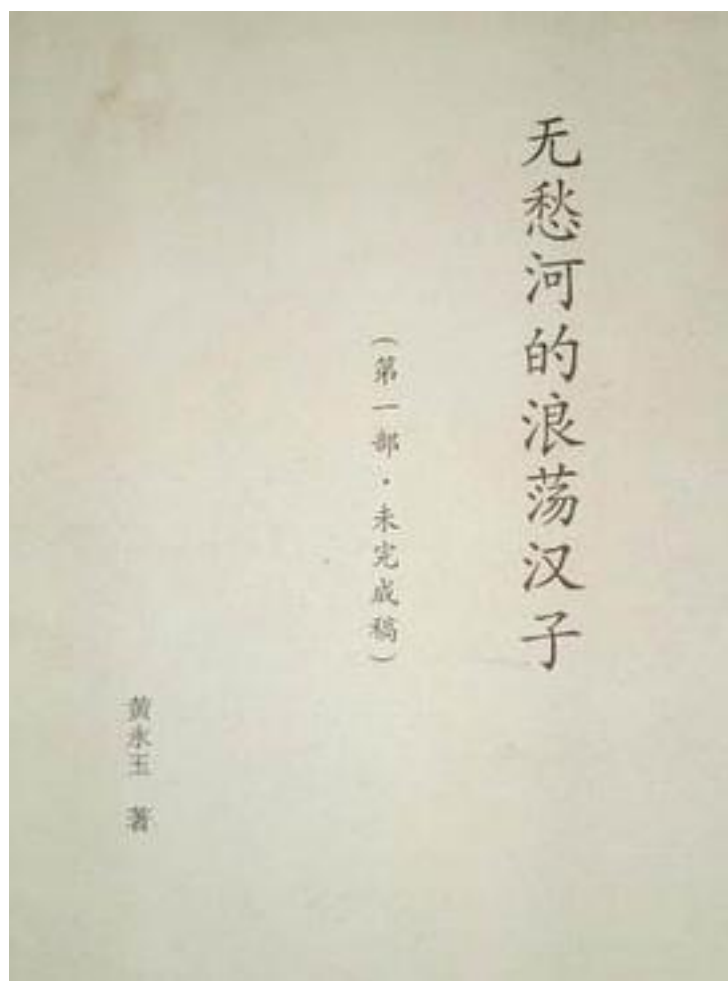 无愁河的浪荡汉子
（第一部·未完成稿）
黄永玉 著